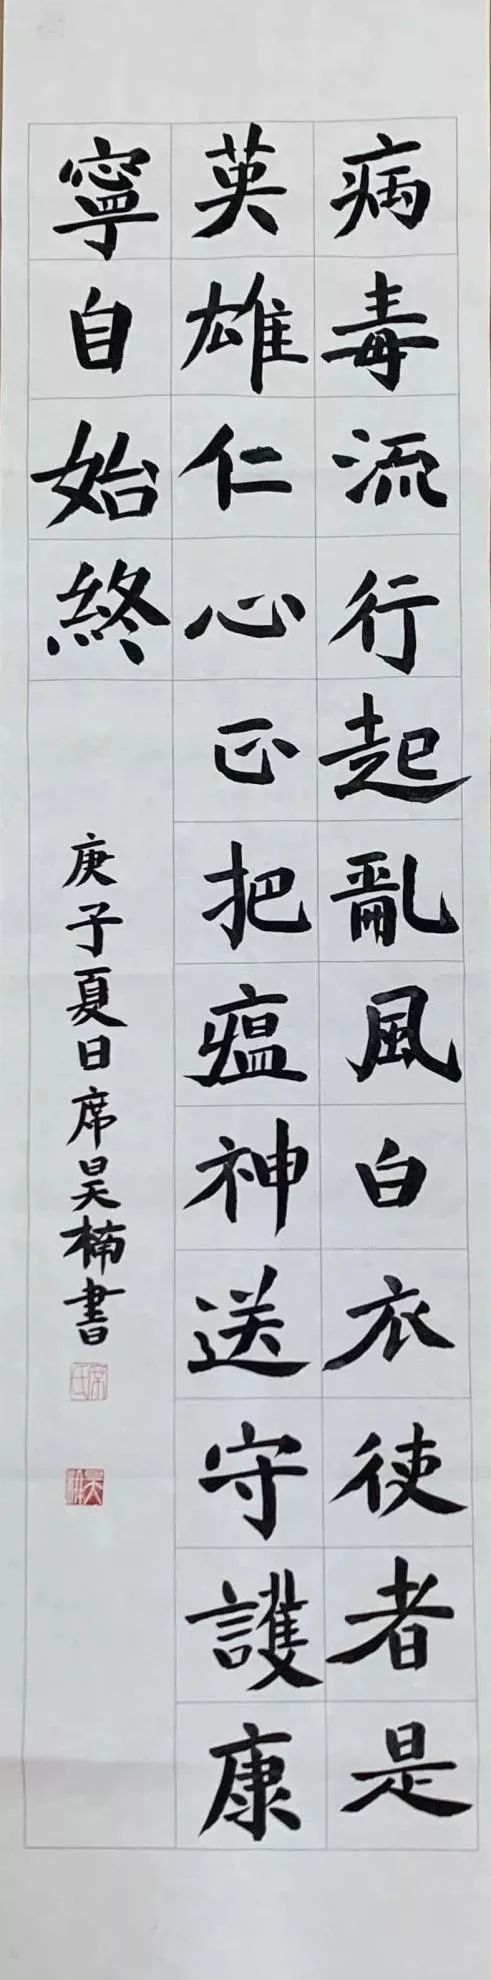 病毒流行起亂風白衣使者是
英雄仁心正把瘟神送守護康
寧自始終
庚子夏日席昊楠書
席氏
昊楠